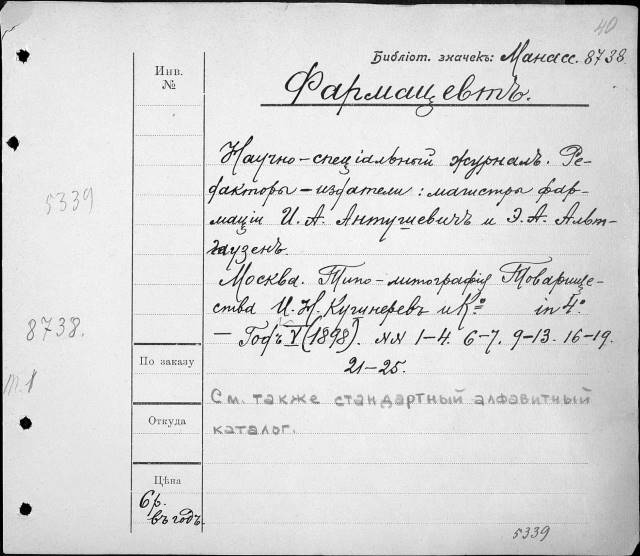 40
Библіот. значекъ: Манасс. 8738.
Инв. №
Фармацевтъ.
Научно-спеціальный журналъ. Ре-
дакторы-издатели: магистры фар-
маціи И. А. Антушевичъ и Э. А. Альт-
гаузенъ.
Москва. Типо-литографія Товарище-
ства И. Н. Кушнеревъ и Кº in 4º.
— Годъ V (1898). NN 1-4. 6-7. 9-13. 16-19.
21-25.
См. также стандартный алфавитный
каталог.
5339
8738.
т. 1
По заказу
Откуда
Цѣна
6 р.
въ годъ.
5339